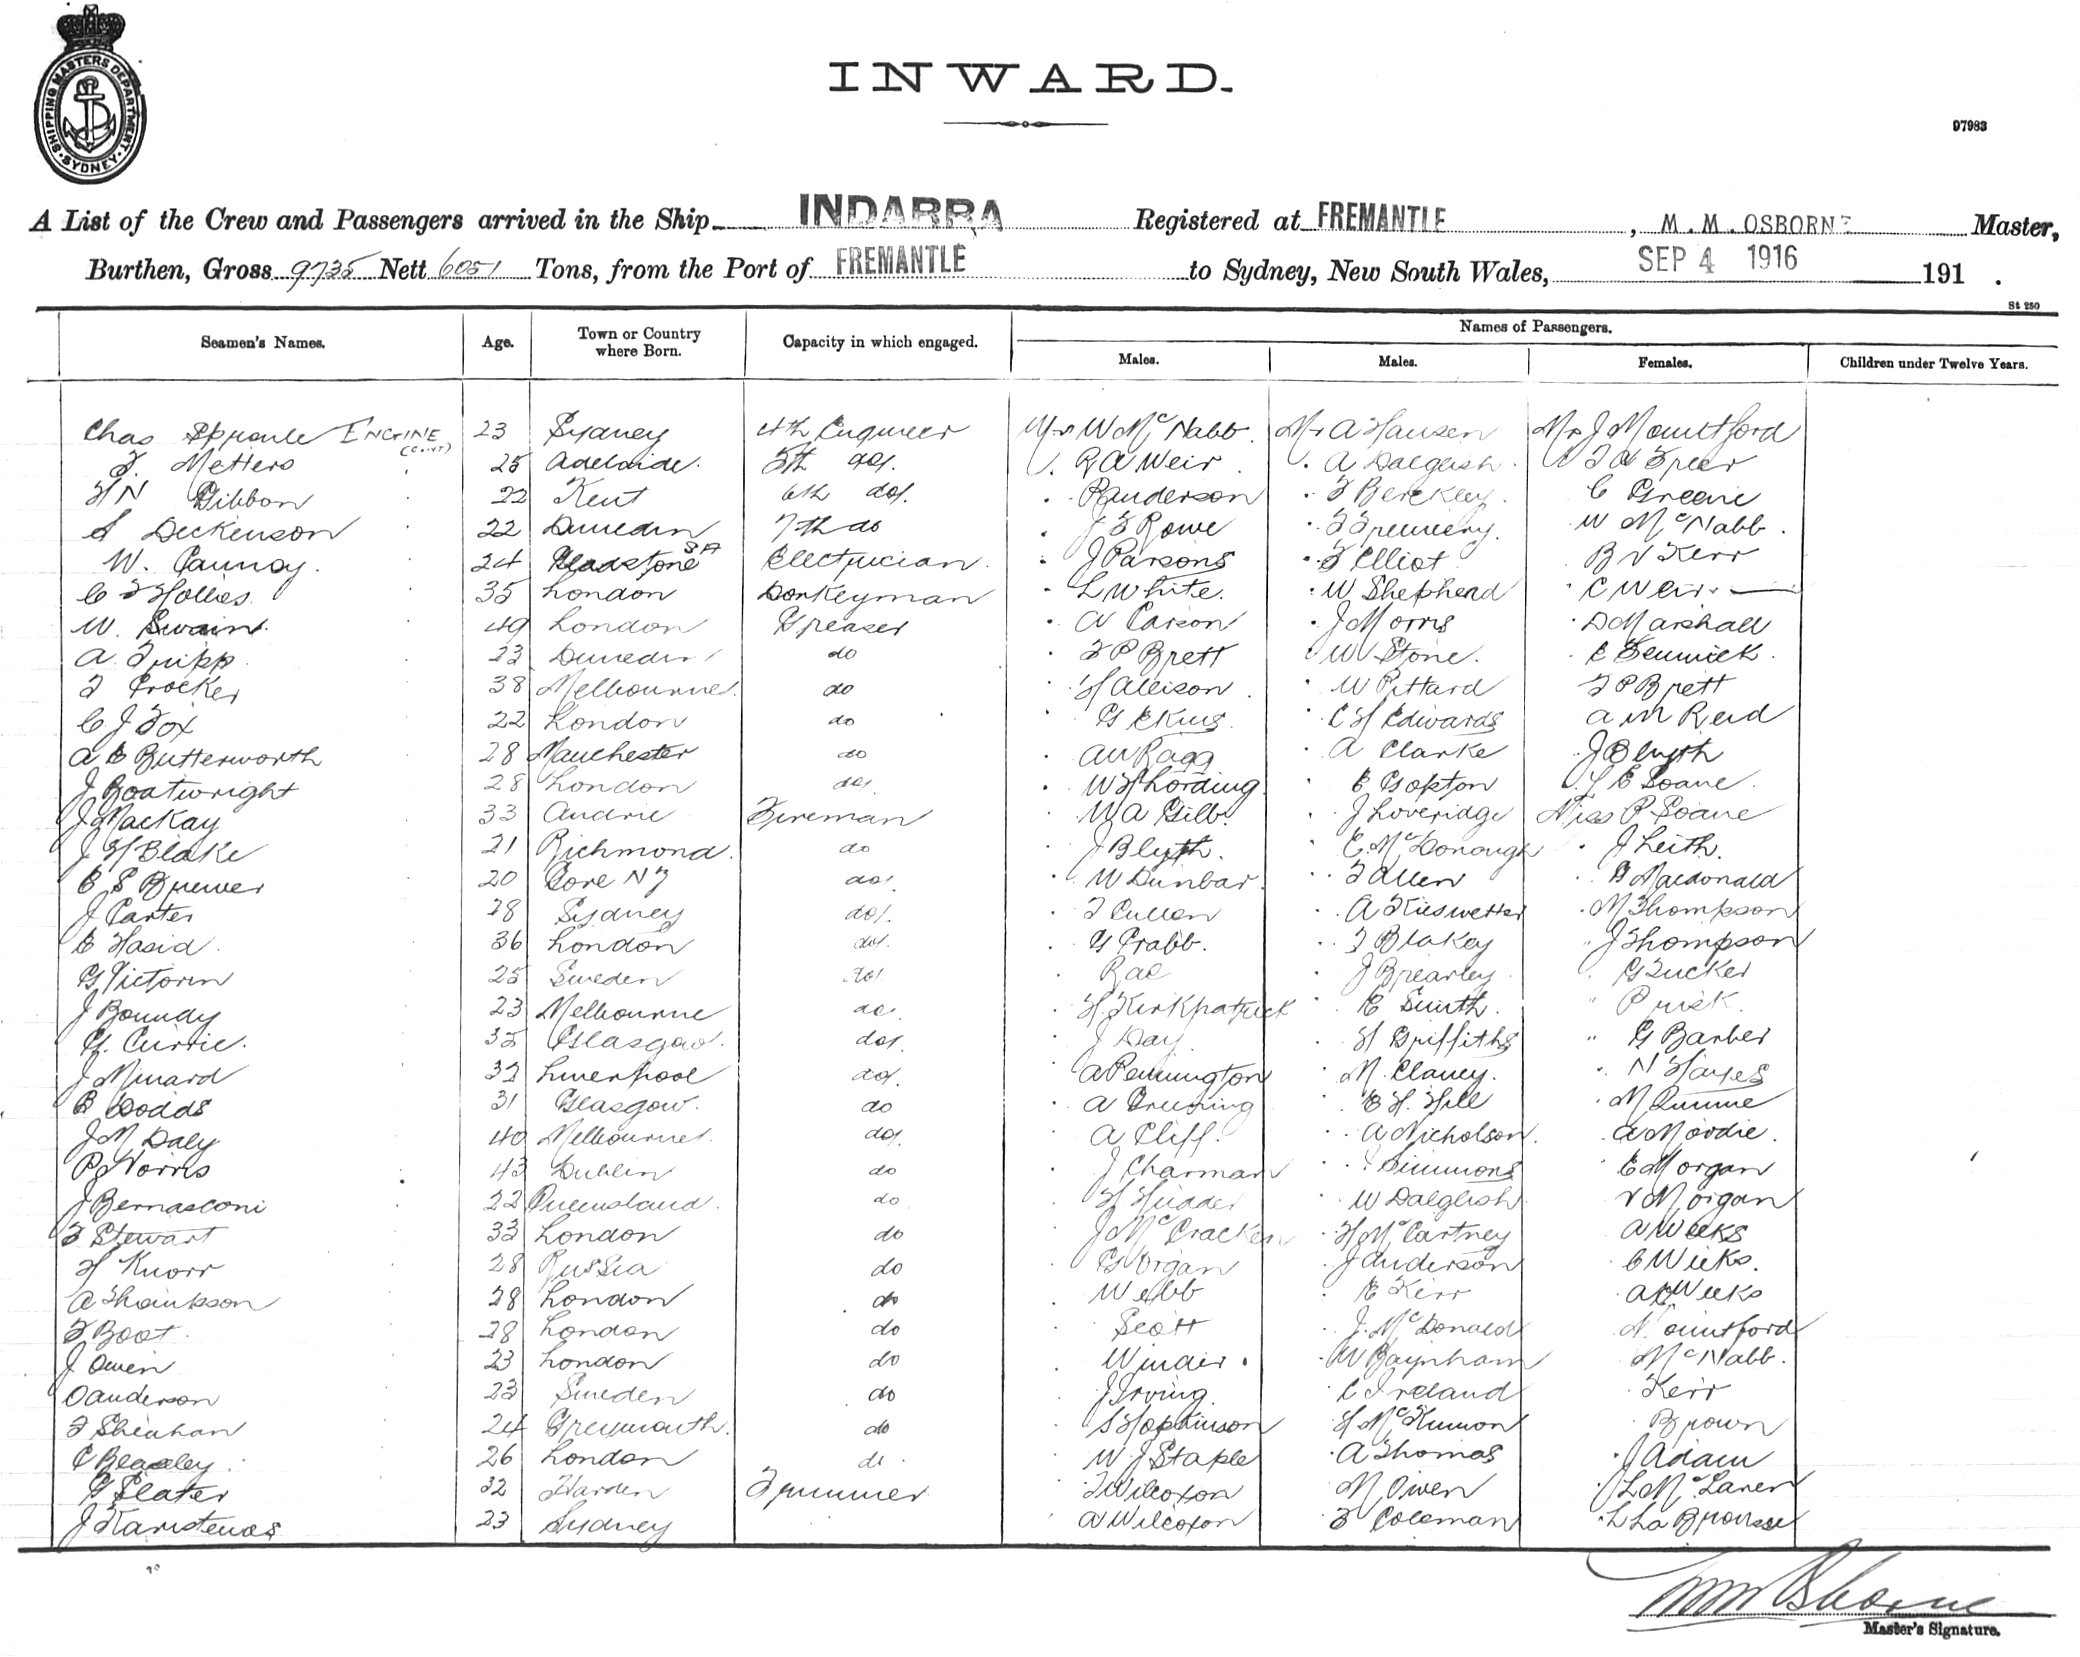 SHIPPING MASTERS DEPARTMENT. SYDNEY
INWARD.
97983
A List of the Crew and Passengers arrived in the Ship INDARRA Registered at FREMANTLE, M. M. OSBORNE Master,
Burthen, Gross 9735 Nett 6051 Tons, from the Port of FREMANTLE to Sydney, New South Wales, SEP 4 1916 191 .
St 250
Seamen's Names. Age. Town or Country where Born. Capacity in which engaged. Names of Passengers.
Males. Males. Females. Children under Twelve Years.
Chas Sproule ENGINE (CONT) 23 Sydney 4th Engineer Mr W McNabb. Mr A Hansen Mrs J Mountford
F. Metters 25 Adelaide. 5th do. R A Weir. A Dalgleish. F A Greer
H N Gibbon 22 Kent 6th do. R Anderson F Berckley. C Greene
S Dickenson 22 Dunedin 7th do J F Rowe F Fremery. W McNabb.
W. Cannoy. 24 Gladstone SA Electrician. J Parsons F Elliot B V Kerr
C F Hollies. 35 London Donkeyman L White. W Shepherd C Weir.
W. Swain. 49 London Greaser A Carson J Morris D Marshall
A. Tripp. 23 Dunedin do F P Brett W Stone. C Fenwick.
F Crocker 38 Melbourne. do H Allison. W Pittard F P Brett
C J Fox 22 London do G Ekins. C H Edwards A M Reid
A E Butterworth 28 Manchester do A W Ragg A Clarke J Blyth
J Boatwright 28 London do. W H Lording E Gopton Y E Soane.
J Mackay 33 Fireman W A Gilb. J Loveridge Miss P Soane
J H Blake 21 Richmond. do J Blyth. E. McDonough J Leith.
E S Brewer 20 Gore NZ do. W Dunbar. F Allen G Macdonald
J Carter 28 Sydney do. F Cullen A Kieswetter M Thompson
E Hasid. 36 London do. G Crabb. F Blakey J Thompson
G Victorin 25 Sweden do. Rae J Brearley. G Tucker
J Boundy 23 Melbourne do. H. Kirkpatrick E Smith. Prisk.
G. Currie. 35 Glasgow. do. J Day. H Griffiths G Barber
J Minard 32 Liverpool do. A Pennington M. Clancy. N Hayes
E Dodds 31 Glasgow. do A Greening E H. Hill M Quinne
J M Daly 40 Melbourne. do. A Cliff. A Nicholson. A Moodie.
P Norris 43 Dublin do J Charman Simmons E Morgan
J Bernasconi 22 Queensland. do H Hudder W Dalgleish. V Morgan
F Stewart 33 London do J McCracken H McCartney A Weeks
H Knorr 28 Russia do G Organ J Anderson C Weeks.
A Thompson 28 London do Webb E Kerr A E Weeks
F Boot. 28 London do Scott J. McDonald Mountford
J Owen 23 London do Winder. W Baynham McNabb.
O Anderson 23 Sweden do J Irving. C Ireland Kerr
F Sheahan 24 Greymouth. do S Hopkinson H McKinnon Brown
C Beazley. 26 London do. W J Staple A Thomas J Adam
G Slater 32 Harden Trimmer F Wilcoxon M Owen L McLaren
J Karstenos 23 Sydney A Wilcoxon F Coleman L La Brousse
M M Osborne
Master's Signature.